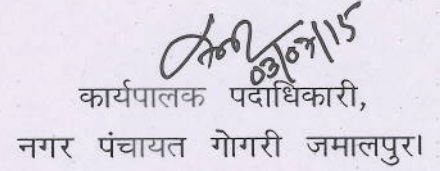 03/07/15
कार्यपालक पदाधिकारी,
नगर पंचायत गोगरी जमालपुर।